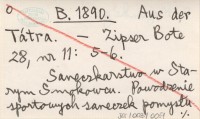 o B. 1890. Aus der
Tátra. — Zipser Bote
28, nr 11: 5-6.
Saneczkarstwo w Sta-
rym Smokowcu. Powodzenie
sportowych saneczek pomysłu
B.